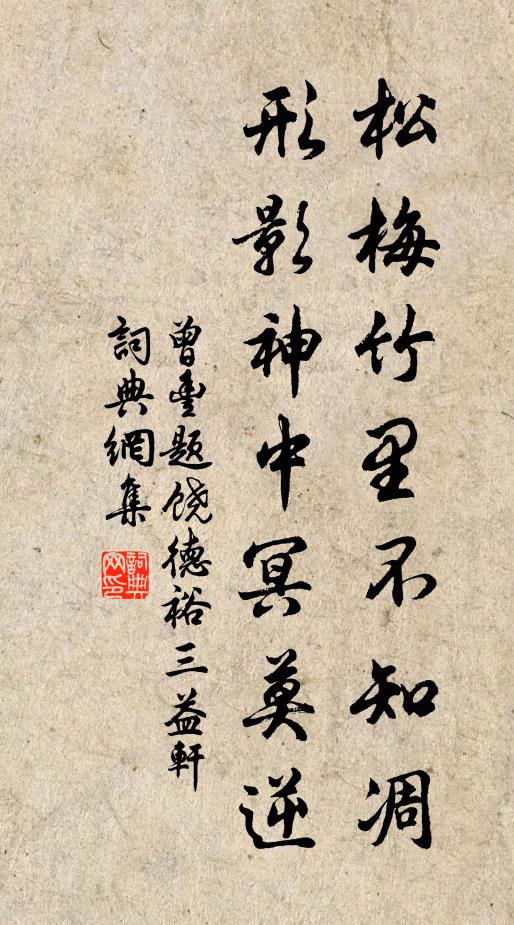 松梅竹里不知凋
形影神中冥莫逆
曾豊题饶德裕三益軒
詞典網集
詞典网印